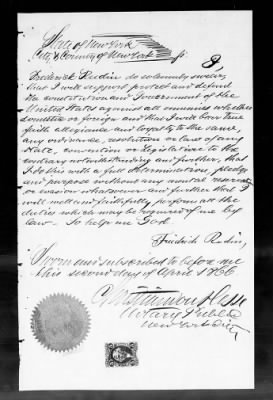 State of New York
City & County of New York } ss
I
Frederick Rudin do solemnly swear,
that I will support protect and defend
the constitution and Government of the
United States against all enemies whether
domestic or foreign and that I will bear true
faith allegiance and loyalty to the same,
any ordinance, resolution or law of any
State, convention or legislature to the
contrary notwithstanding and further, that
I do this with a full determination, pledge
and purpose without any mental reservation
or evasion whatsoever and further that I
will well and faithfully perform all the
duties which may be required of me by
law. So help me God.
Friedrich Rudin,
Sworn and subscribed to before me
this second day of April 1866
Notary Public
New York City